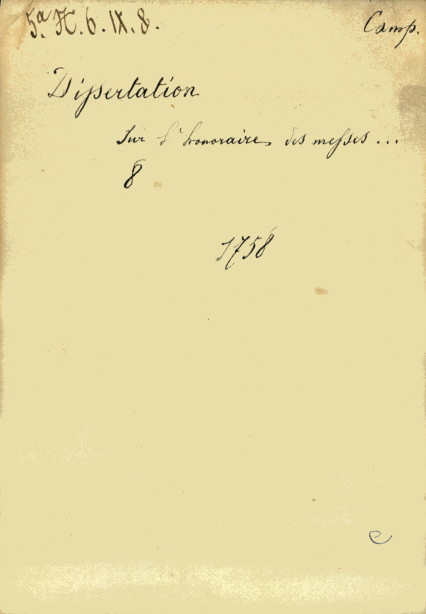 5ª H. 6. IX. 8.
Camp.
Dissertation
Sur l'honoraire des messes...
8
1758